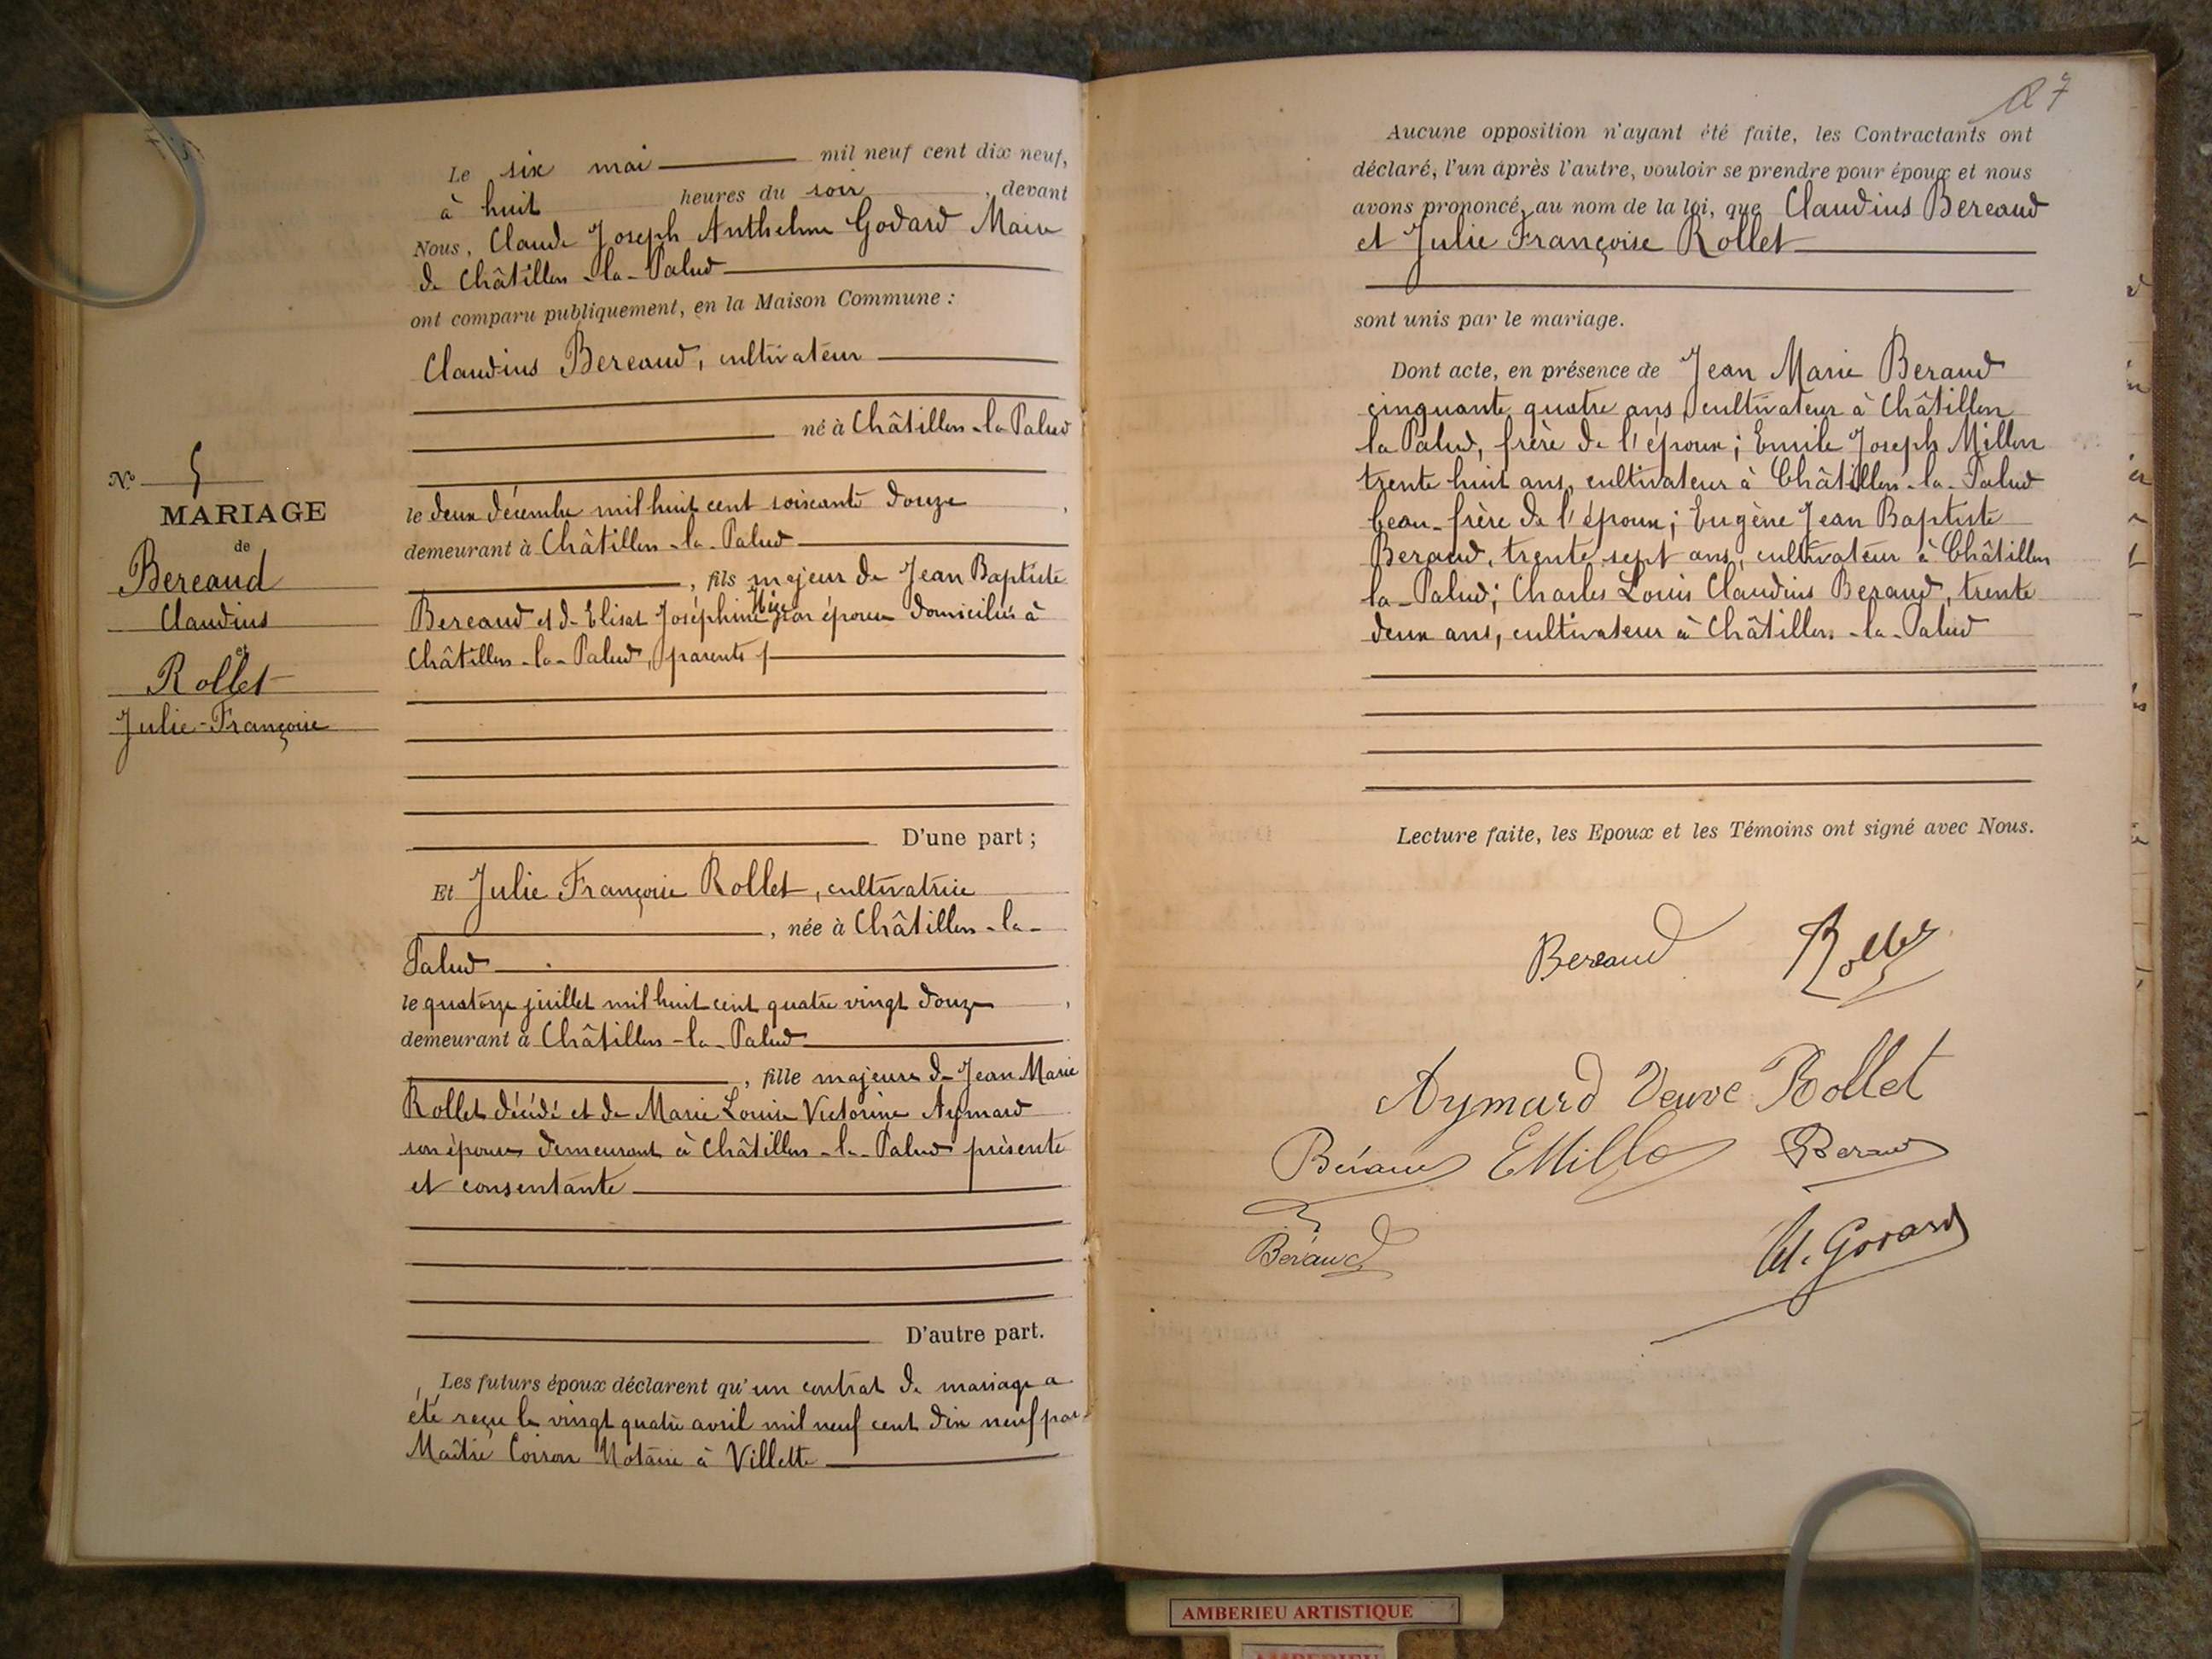 Le six mai mil neuf cent dix neuf,
à huit heures du soir, devant
Nous, Claude Joseph Anthelme Godard Maire
de Châtillon-la-Palud
ont comparu publiquement, en la Maison Commune :
Claudius Bereaud, cultivateur
né à Châtillon-la Palud
le deux décembre mil huit cent soixante douze,
demeurant à Châtillon-la-Palud
, fils majeur de Jean Baptiste
Bereaud et de Elisat Joséphine son épouse domiciliés à
Châtillon-la-Palud, parents
D'une part ;
Et Julie Françoise Rollet, cultivatrice
, née à Châtillon-la-
Palud
le quatorze juillet mil huit cent quatre vingt douze,
demeurant à Châtillon-la-Palud
, fille majeure de Jean Marie
Rollet décédé et de Marie Louise Victorine Aymard
son épouse demeurant à Châtillon-la-Palud présente
et consentante
D'autre part.
Les futurs époux déclarent qu'un contrat de mariage a
été reçu le vingt quatre avril mil neuf cent dix neuf par
Maître Notaire à Villette
N° 5
MARIAGE
de
Bereaud
Claudius
et
Rollet
Julie-Françoise
Aucune opposition n'ayant été faite, les Contractants ont
déclaré, l'un après l'autre, vouloir se prendre pour époux et nous
avons prononcé, au nom de la loi, que Claudius Bereaud
et Julie Françoise Rollet
sont unis par le mariage.
Dont acte, en présence de Jean Marie Beraud
cinquante quatre ans, cultivateur à Châtillon
la Palud, frère de l'époux; Emile Joseph Millon
trente huit ans, cultivateur à Châtillon-la-Palud
beau-frère de l'époux; Eugène Jean Baptiste
Beraud, trente sept ans, cultivateur à Châtillon
la-Palud; Charles Louis Claudius Beraud, trente
deux ans, cultivateur à Châtillon-la-Palud
Lecture faite, les Epoux et les Témoins ont signé avec Nous.
Bereaud Rollet
Aymard Veuve Rollet
Béraud EMillo Beraud
Béraud
Godard
AMBERIEU ARTISTIQUE
AMBERIEU